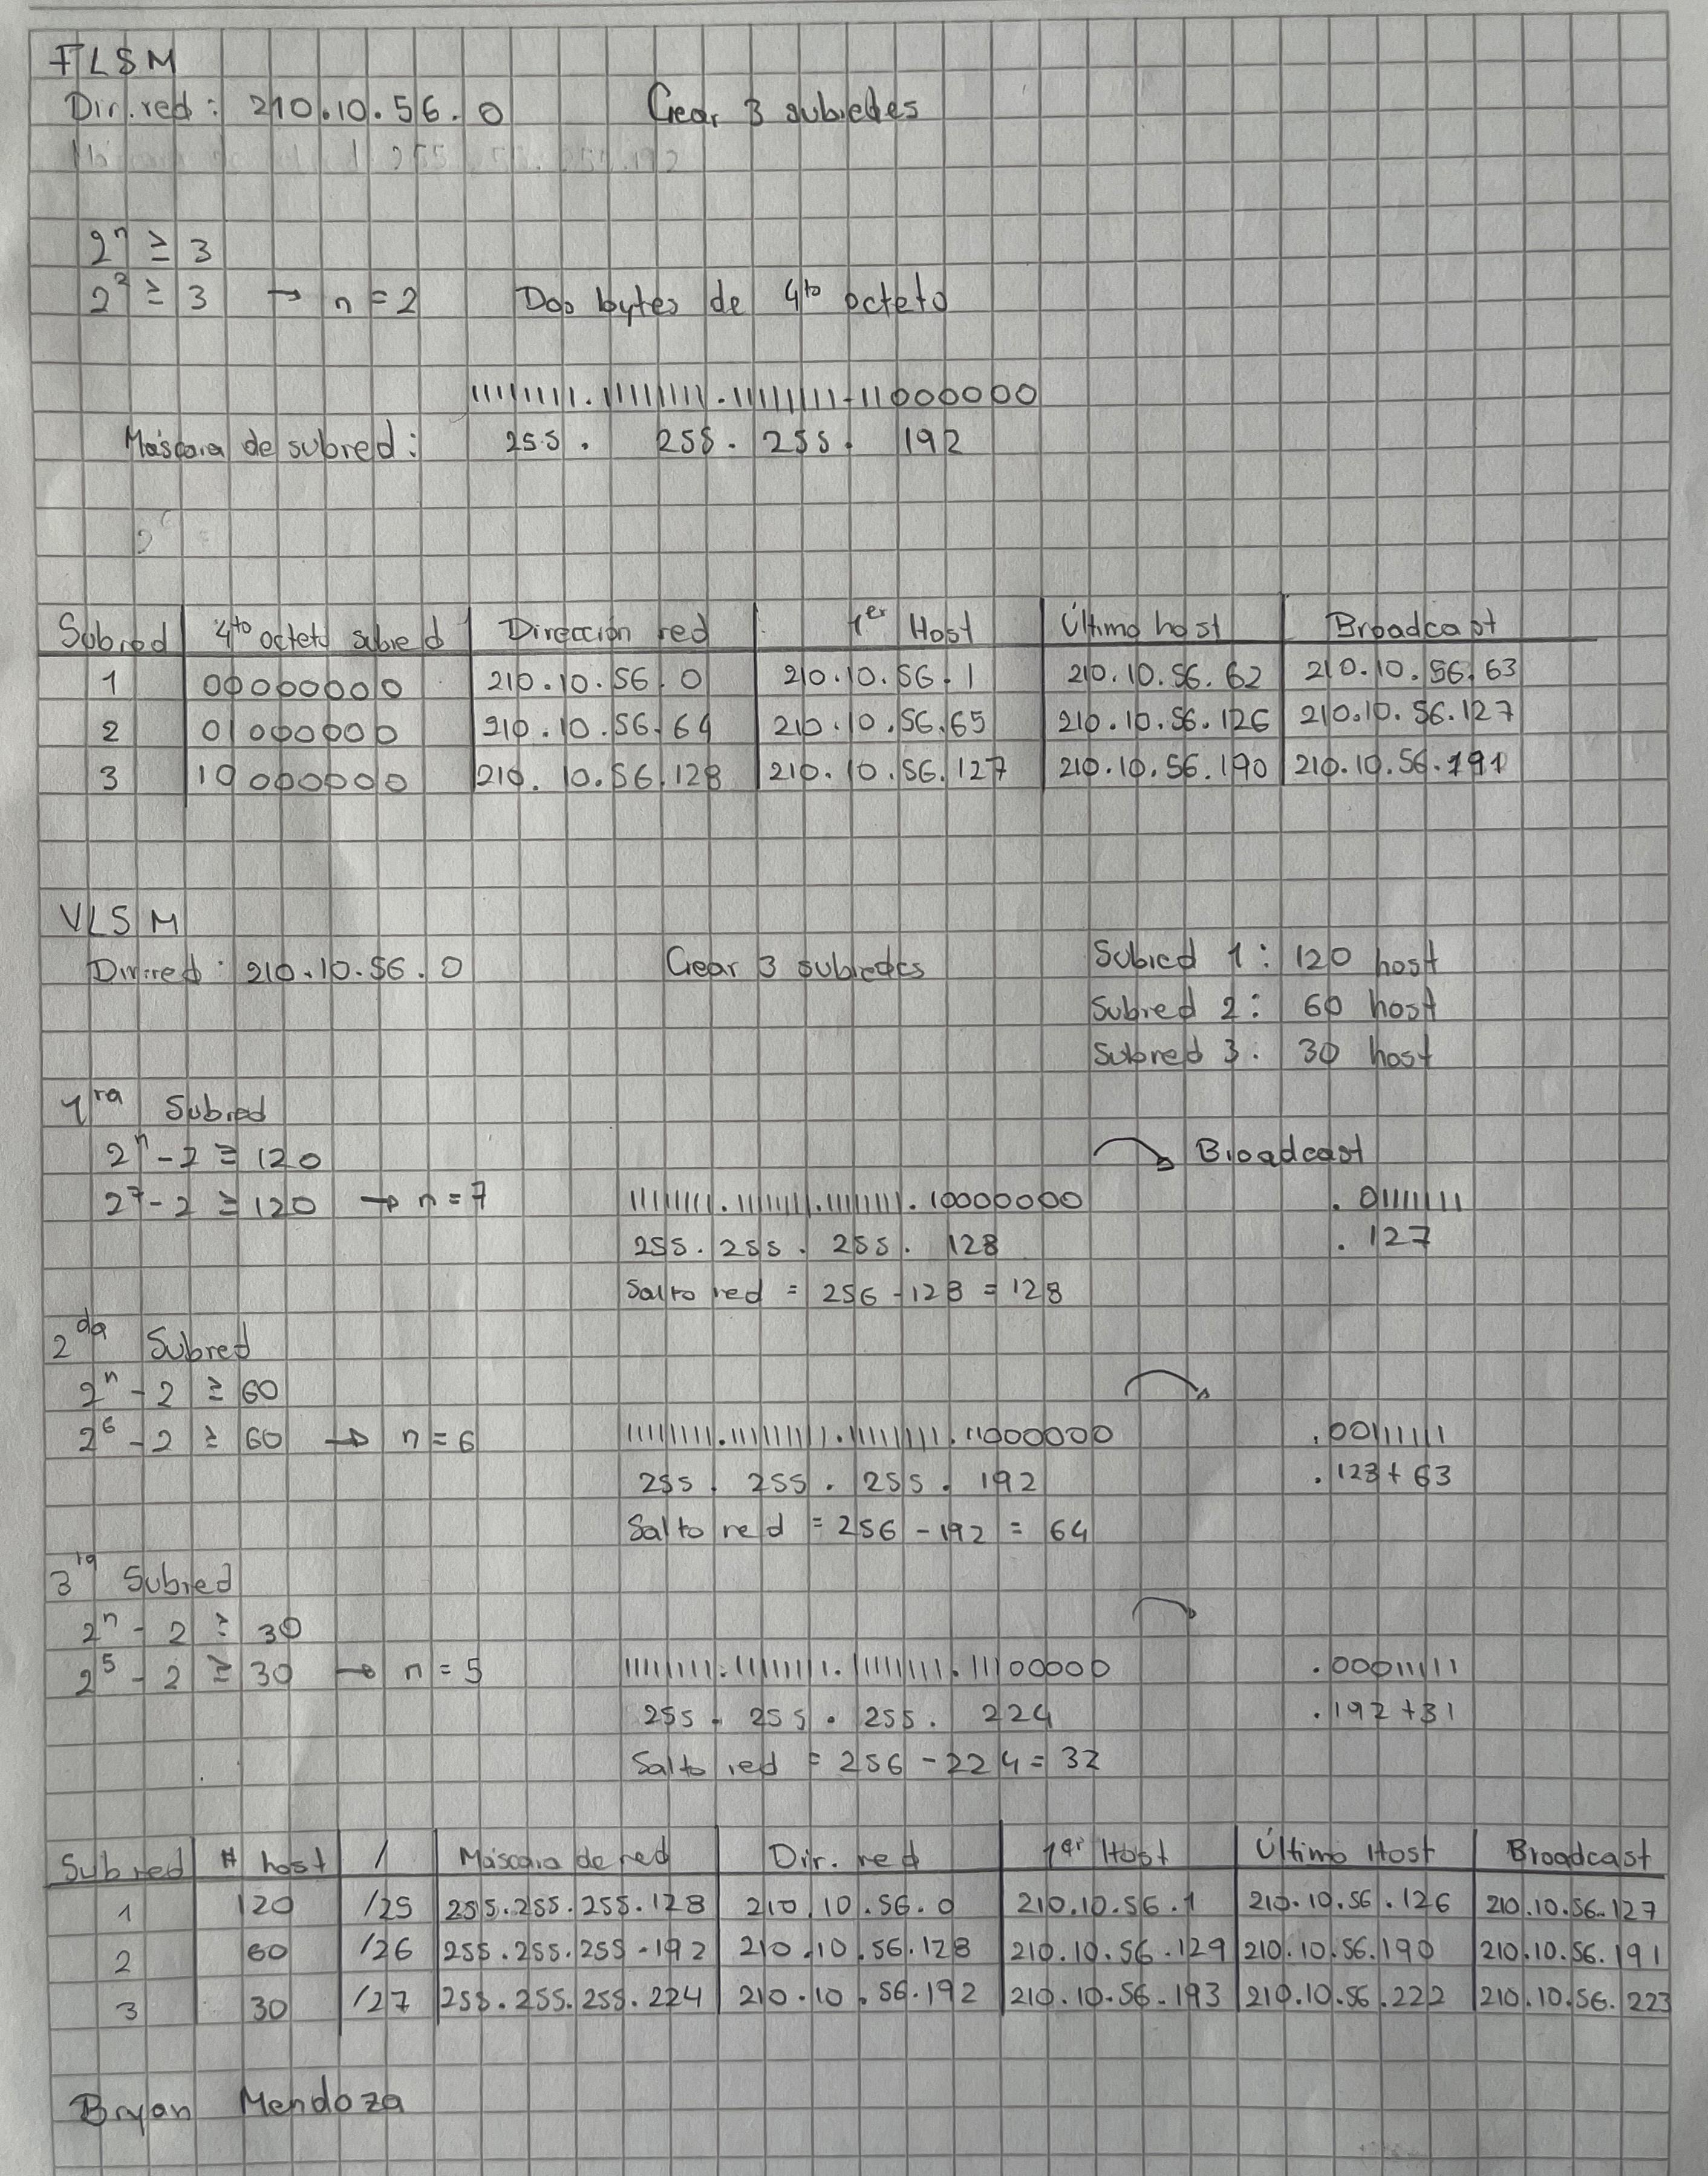 FLSM
Dir. red: 210.10.56.0 Crear 3 subredes
2^n ≥ 3
2^2 ≥ 3 → n = 2 Dos bytes de 4to octeto
11111111.11111111.11111111.11000000
Máscara de subred: 255. 255. 255. 192
Subred 4to octeto subred Dirección red 1er Host Último host Broadcast
1 00000000 210.10.56.0 210.10.56.1 210.10.56.62 210.10.56.63
2 01000000 210.10.56.64 210.10.56.65 210.10.56.126 210.10.56.127
3 10000000 210.10.56.128 210.10.56.127 210.10.56.190 210.10.56.191
VLSM
Dir.red: 210.10.56.0 Crear 3 subredes Subred 1: 120 host
Subred 2: 60 host
Subred 3: 30 host
1ra Subred
2^n - 2 ≥ 120 Broadcast
2^7 - 2 ≥ 120 → n = 7 11111111.11111111.11111111.10000000 .01111111
255. 255. 255. 128 .127
Salto red = 256 - 128 = 128
2da Subred
2^n - 2 ≥ 60
2^6 - 2 ≥ 60 → n = 6 11111111.11111111.11111111.11000000 .00111111
255. 255. 255. 192 .128 + 63
Salto red = 256 - 192 = 64
3ra Subred
2^n - 2 ≥ 30
2^5 - 2 ≥ 30 → n = 5 11111111.11111111.11111111.11100000 .00011111
255. 255. 255. 224 .192 + 31
Salto red = 256 - 224 = 32
Subred # host / Máscara de red Dir. red 1er Host Último Host Broadcast
1 120 /25 255.255.255.128 210.10.56.0 210.10.56.1 210.10.56.126 210.10.56.127
2 60 /26 255.255.255.192 210.10.56.128 210.10.56.129 210.10.56.190 210.10.56.191
3 30 /27 255.255.255.224 210.10.56.192 210.10.56.193 210.10.56.222 210.10.56.223
Bryan Mendoza